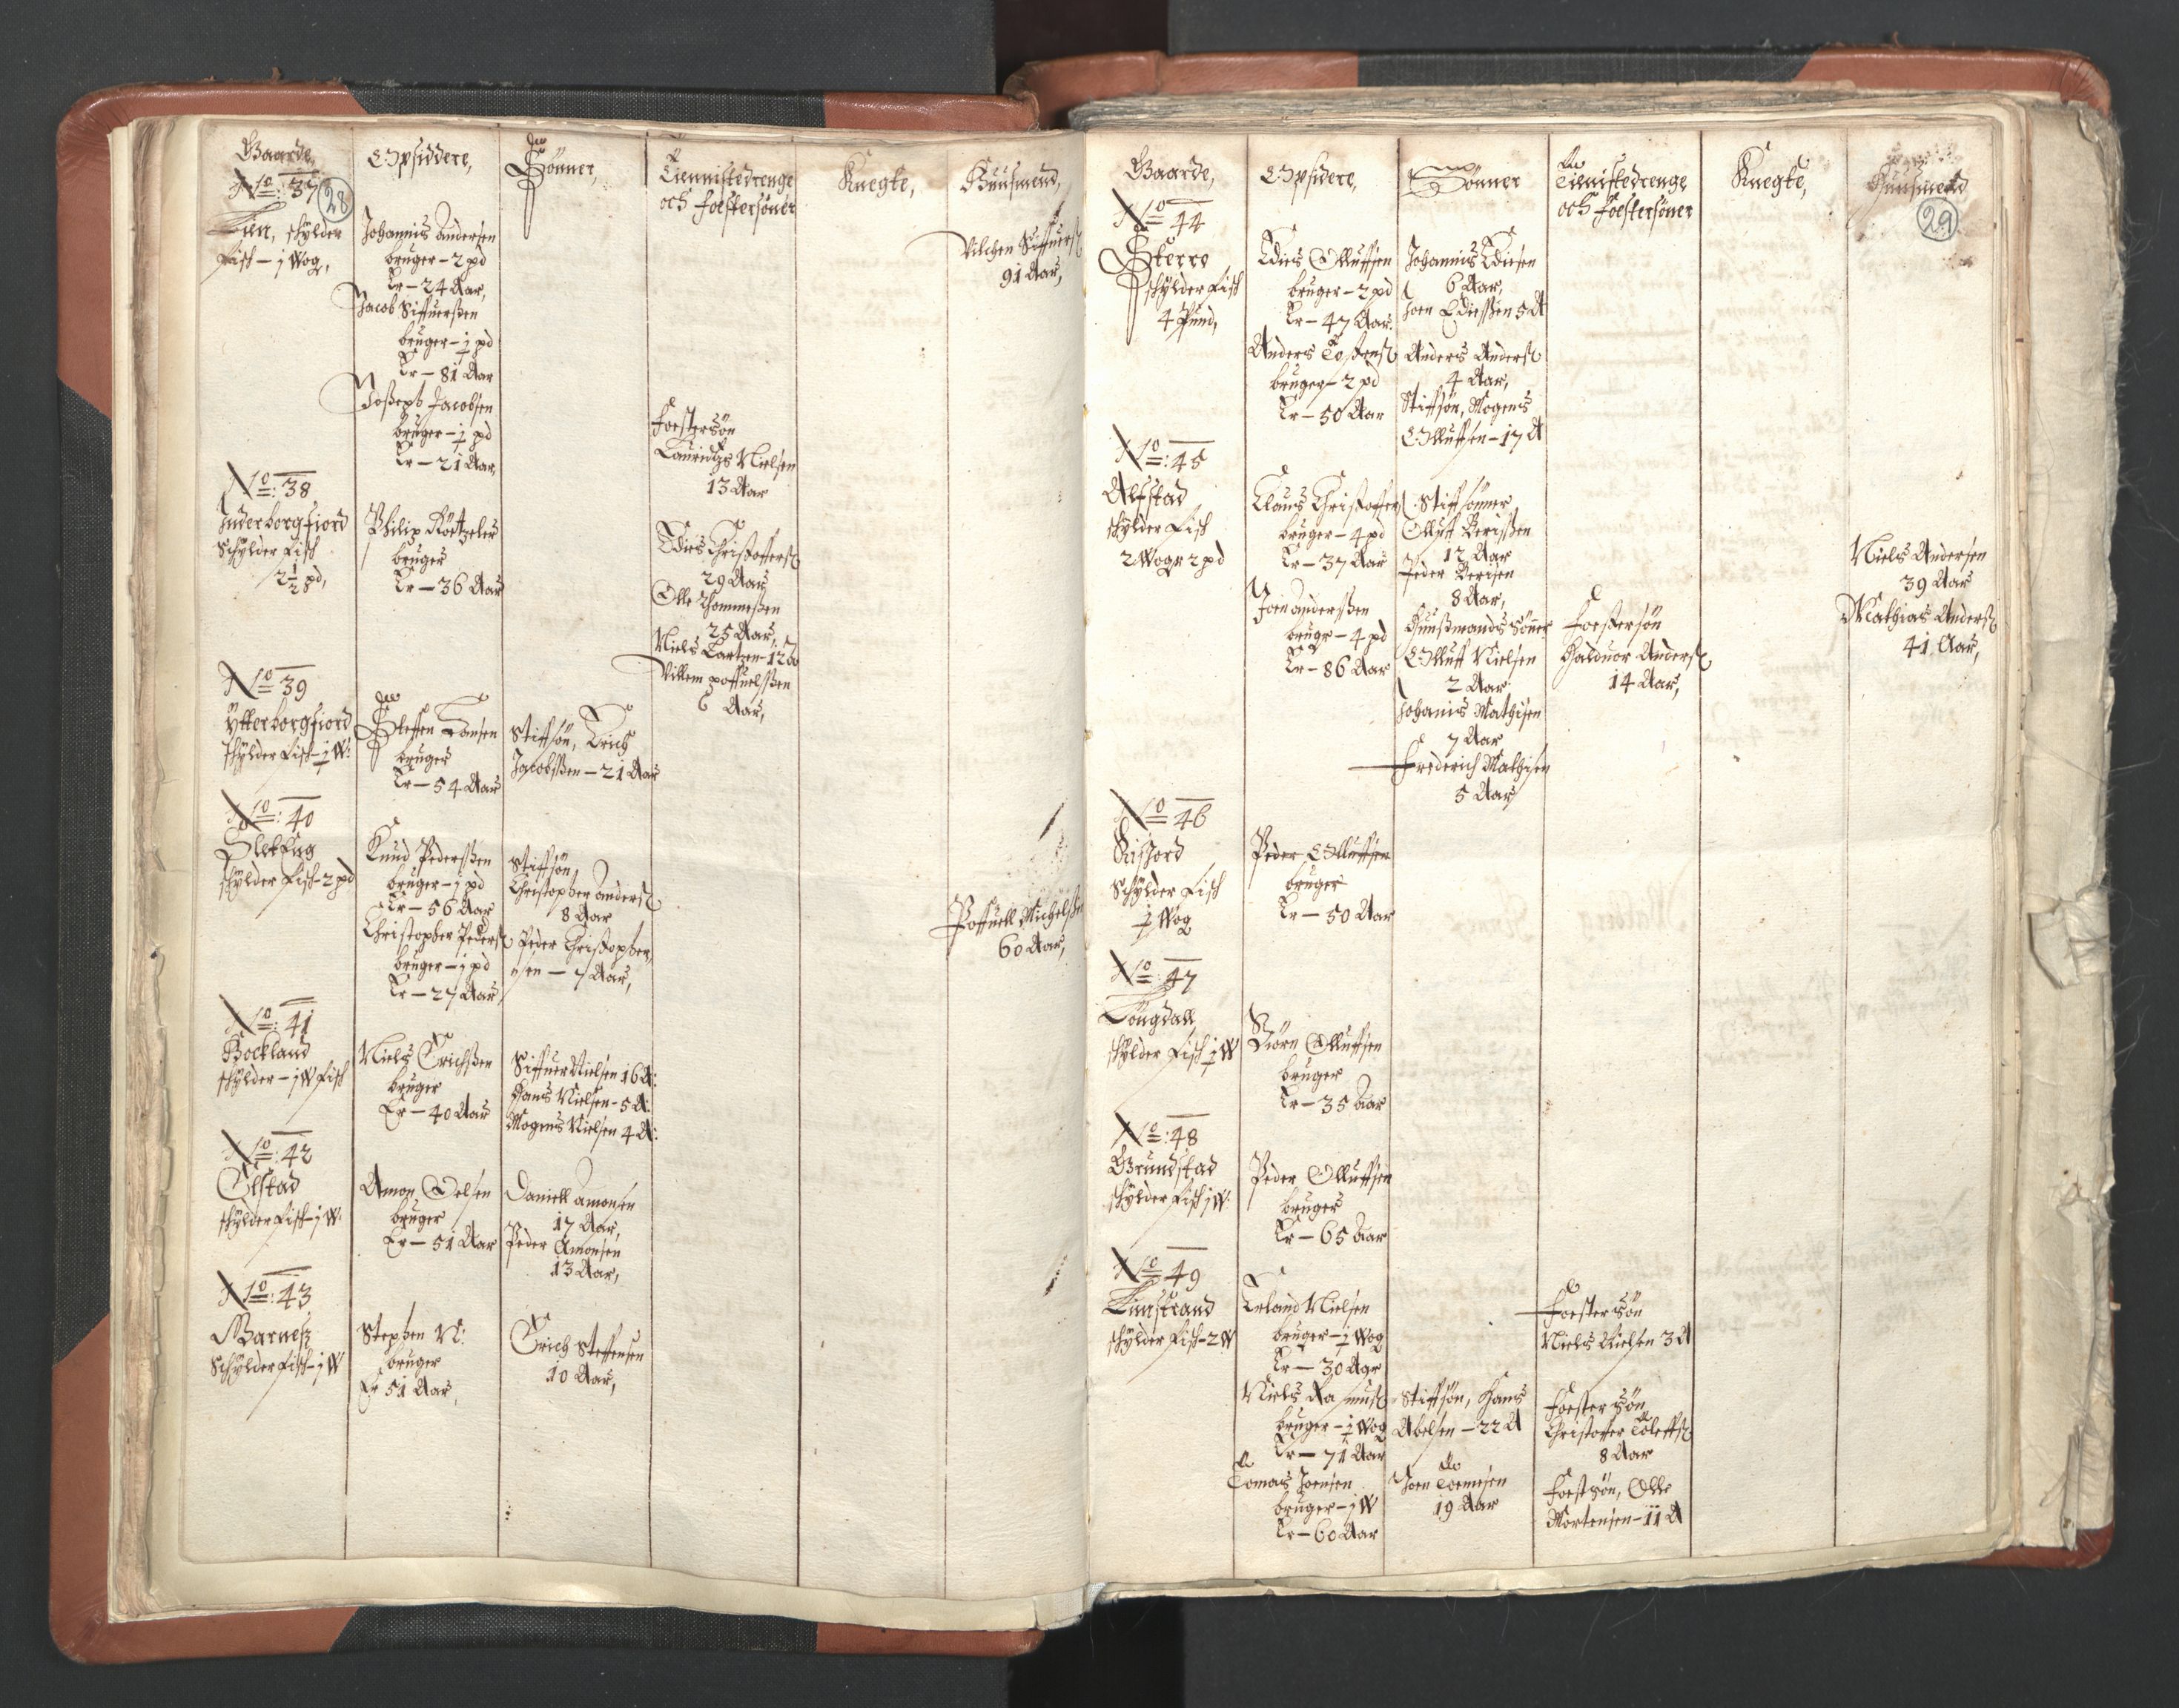 Gaarde,
Opsiddere,
Sönner,
Tiennistedrenge
och fostersöner
Knegte,
Huusmend,
No: 37
28
Lien, schylder
Fisch – j Wog,
Johannis Andersen
bruger – 2 pd
Er – 24 Aar,
Jacob Siffuerßen
bruger – ½ pd
Er – 81 Aar
Joßeph Jacobsen
bruger – ½ pd
Er – 21 Aar,
Fostersön
Lauridtz Nielsen
13 Aar
Siffuers
91 Aar,
No: 38
Inderborgfiord
Schylder Fisch
2½ pd,
Philip
bruger
Er – 36 Aar
Christoffers
29 Aar
Olle Thommeßen
25 Aar,
Niels Lartzen – 12 a
Villem poffuelßen
6 Aar,
No 39
Ytterborgfiord
schylder Fisch – ½ W:
Steffen
bruger
Er – 54 Aar
Stiffsön, Erich
Jacobßen – 21 Aar
No: 40
schylder Fisch – 2 pd
Knud Pederßen
bruger – j pd
Er – 56 Aar
Christopher Peders
bruger – j pd
Er – 27 Aar
Stiffsön,
Christopher anders
8 Aar
Peder Christopher,
sen – 7 Aar,
Poffuell Michelßen
60 Aar,
No: 41
Bockland
schylder – j W Fisch
Niels Erichßen
bruger
Er – 40 Aar
Siffuer Nielsen 16 A:
Hans Nielsen – 5 A:
Mogens Nielsen 4 A:
No: 42
Elstad
schylder Fisch – j W:
Amon Oelsen
bruger
Er – 51 Aar
Daniell Amonsen
17 Aar,
Peder Amonsen
13 Aar,
No: 43
Schylder Fisch – j W
Stephen N:
bruger
Er 51 Aar,
Erich Steffensen
10 Aar,
Gaarde,
Opsidere,
Sönner
Tienistedrenge
och fostersöner
Knegte,
Huusmend
29
No 44
Sterre
schylder Fisch
4 Pund,
Olluffsen
bruger – 2 pd
Er – 47 Aar.
Anders
bruger – 2 pd
Er – 50 Aar
Johannis
6 Aar,
Joen 5 A
Anders Anders
4 Aar,
Stiffsön, Mogens
Olluffsen – 17 A
No: 45
Alfstad
schylder Fisch
2 Woger 2 pd
Claus Christoffers
bruger – 4 pd
Er – 37 Aar
Joen anderßen
bruger – 4 pd
Er – 86 Aar
Stiffsönner,
Olluff Berißen
12 Aar
Peder Berisen
8 Aar,
Hunßmands sönner
Olluff Nielsen
2 Aar
Johanis Mathisen
7 Aar
Frederich Mathisen
5 Aar
Fostersön
Halduor Anders
14 Aar,
Niels Andersen
39 Aar
Mathias Anders
41 Aar,
No 46
Risjord
Schylder Fisch
½ Wog
Peder Olluffsen
bruger
Er – 50 Aar
No: 47
Löngdall
schylder Fisch ½ W
Biörn Olluffsen
bruger
Er – 35 aar
No: 48
Grundstad
schylder Fisch j W:
Peder Olluffsen
bruger
Er – 65 aar
No 49
Limstrand
schylder Fisch – 2 W
Erland Nielsen
bruger – ½ Wog
Er – 30 Aar
Niels Rasmus
bruger – ½ Wog
Er – 71 Aar
Tomas Joensen
bruger – j W
Er – 60 Aar
Stiffsön, Hans
Abelsen – 22 A
Joen Tomesen
19 Aar
Fostersön
Niels Nielsen 3 A
Fostersön
Christoffer Toleffs
8 Aar
Fostsön, Olle
Mortensen – 11 A